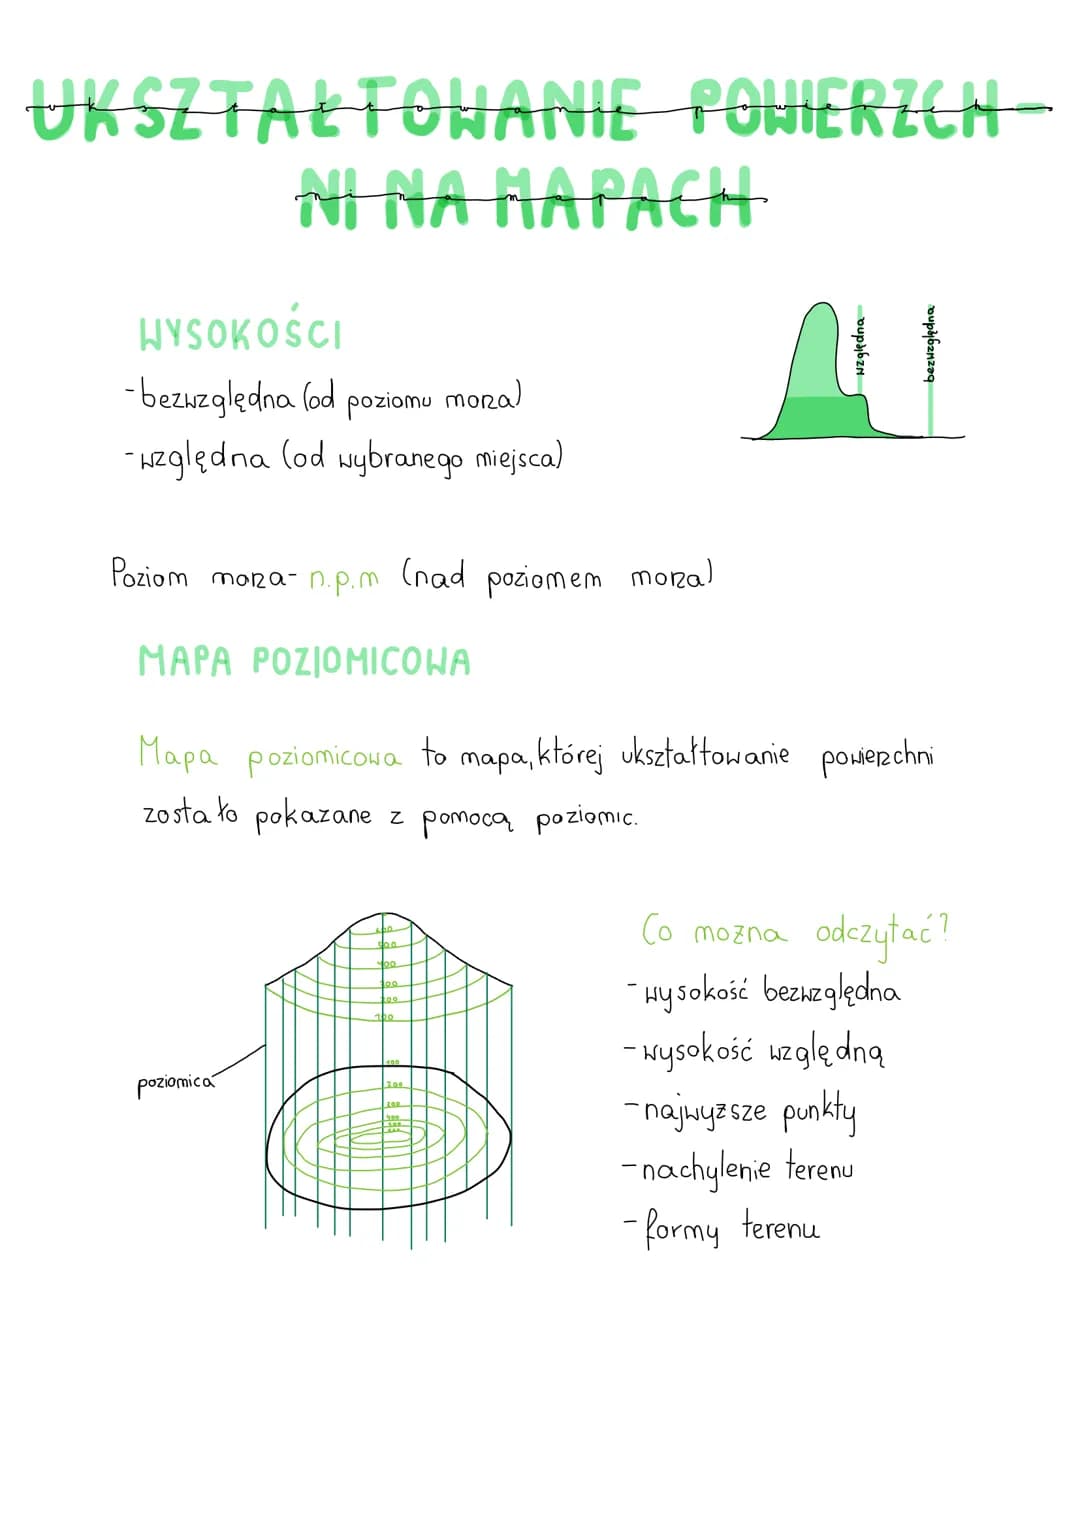 UKSZTAŁTOWANIE POWIERZCH-
ukształtowanie powierzch
NI NA MAPACH
ni na mapach
WYSOKOŚCI
-bezwzględna (od poziomu morza)
-względna (od wybranego miejsca)
względna
bezwzględna
Poziom morza- n.p.m (nad poziomem morza)
MAPA POZIOMICOWA
Mapa poziomicowa to mapa, której ukształtowanie powierzchni
zostało pokazane z pomocą poziomic.
600
500
400
300
200
100
100
200
300
400
500
600
poziomica
Co można odczytać?
-wysokość bezwzględna
-wysokość względną
-najwyższe punkty
-nachylenie terenu
-formy terenu